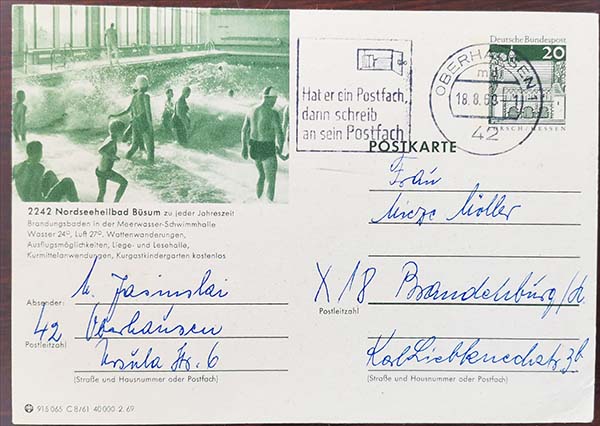 Deutsche Bundespost
20
LORSCH/HESSEN
OBERHAUSEN 1
42
Hat er ein Postfach,
dann schreib
an sein Postfach
POSTKARTE
2242 Nordseeheilbad Büsum zu jeder Jahreszeit
Brandungsbaden in der Meerwasser-Schwimmhalle
Wasser 24°, Luft 27°, Wattenwanderungen,
Ausflugsmöglichkeiten, Liege- und Lesehalle,
Kurmittelanwendungen, Kurgastkindergarten kostenlos
Absender: M. Jasinski
42 Oberhausen
Postleitzahl
Ursula Str. 6
(Straße und Hausnummer oder Postfach)
Frau
Möller
X 18 Brandenburg/H.
Postleitzahl
Karl Liebknechtstr. 3b
(Straße und Hausnummer oder Postfach)
915 065 C 8/61 40 000 2. 69